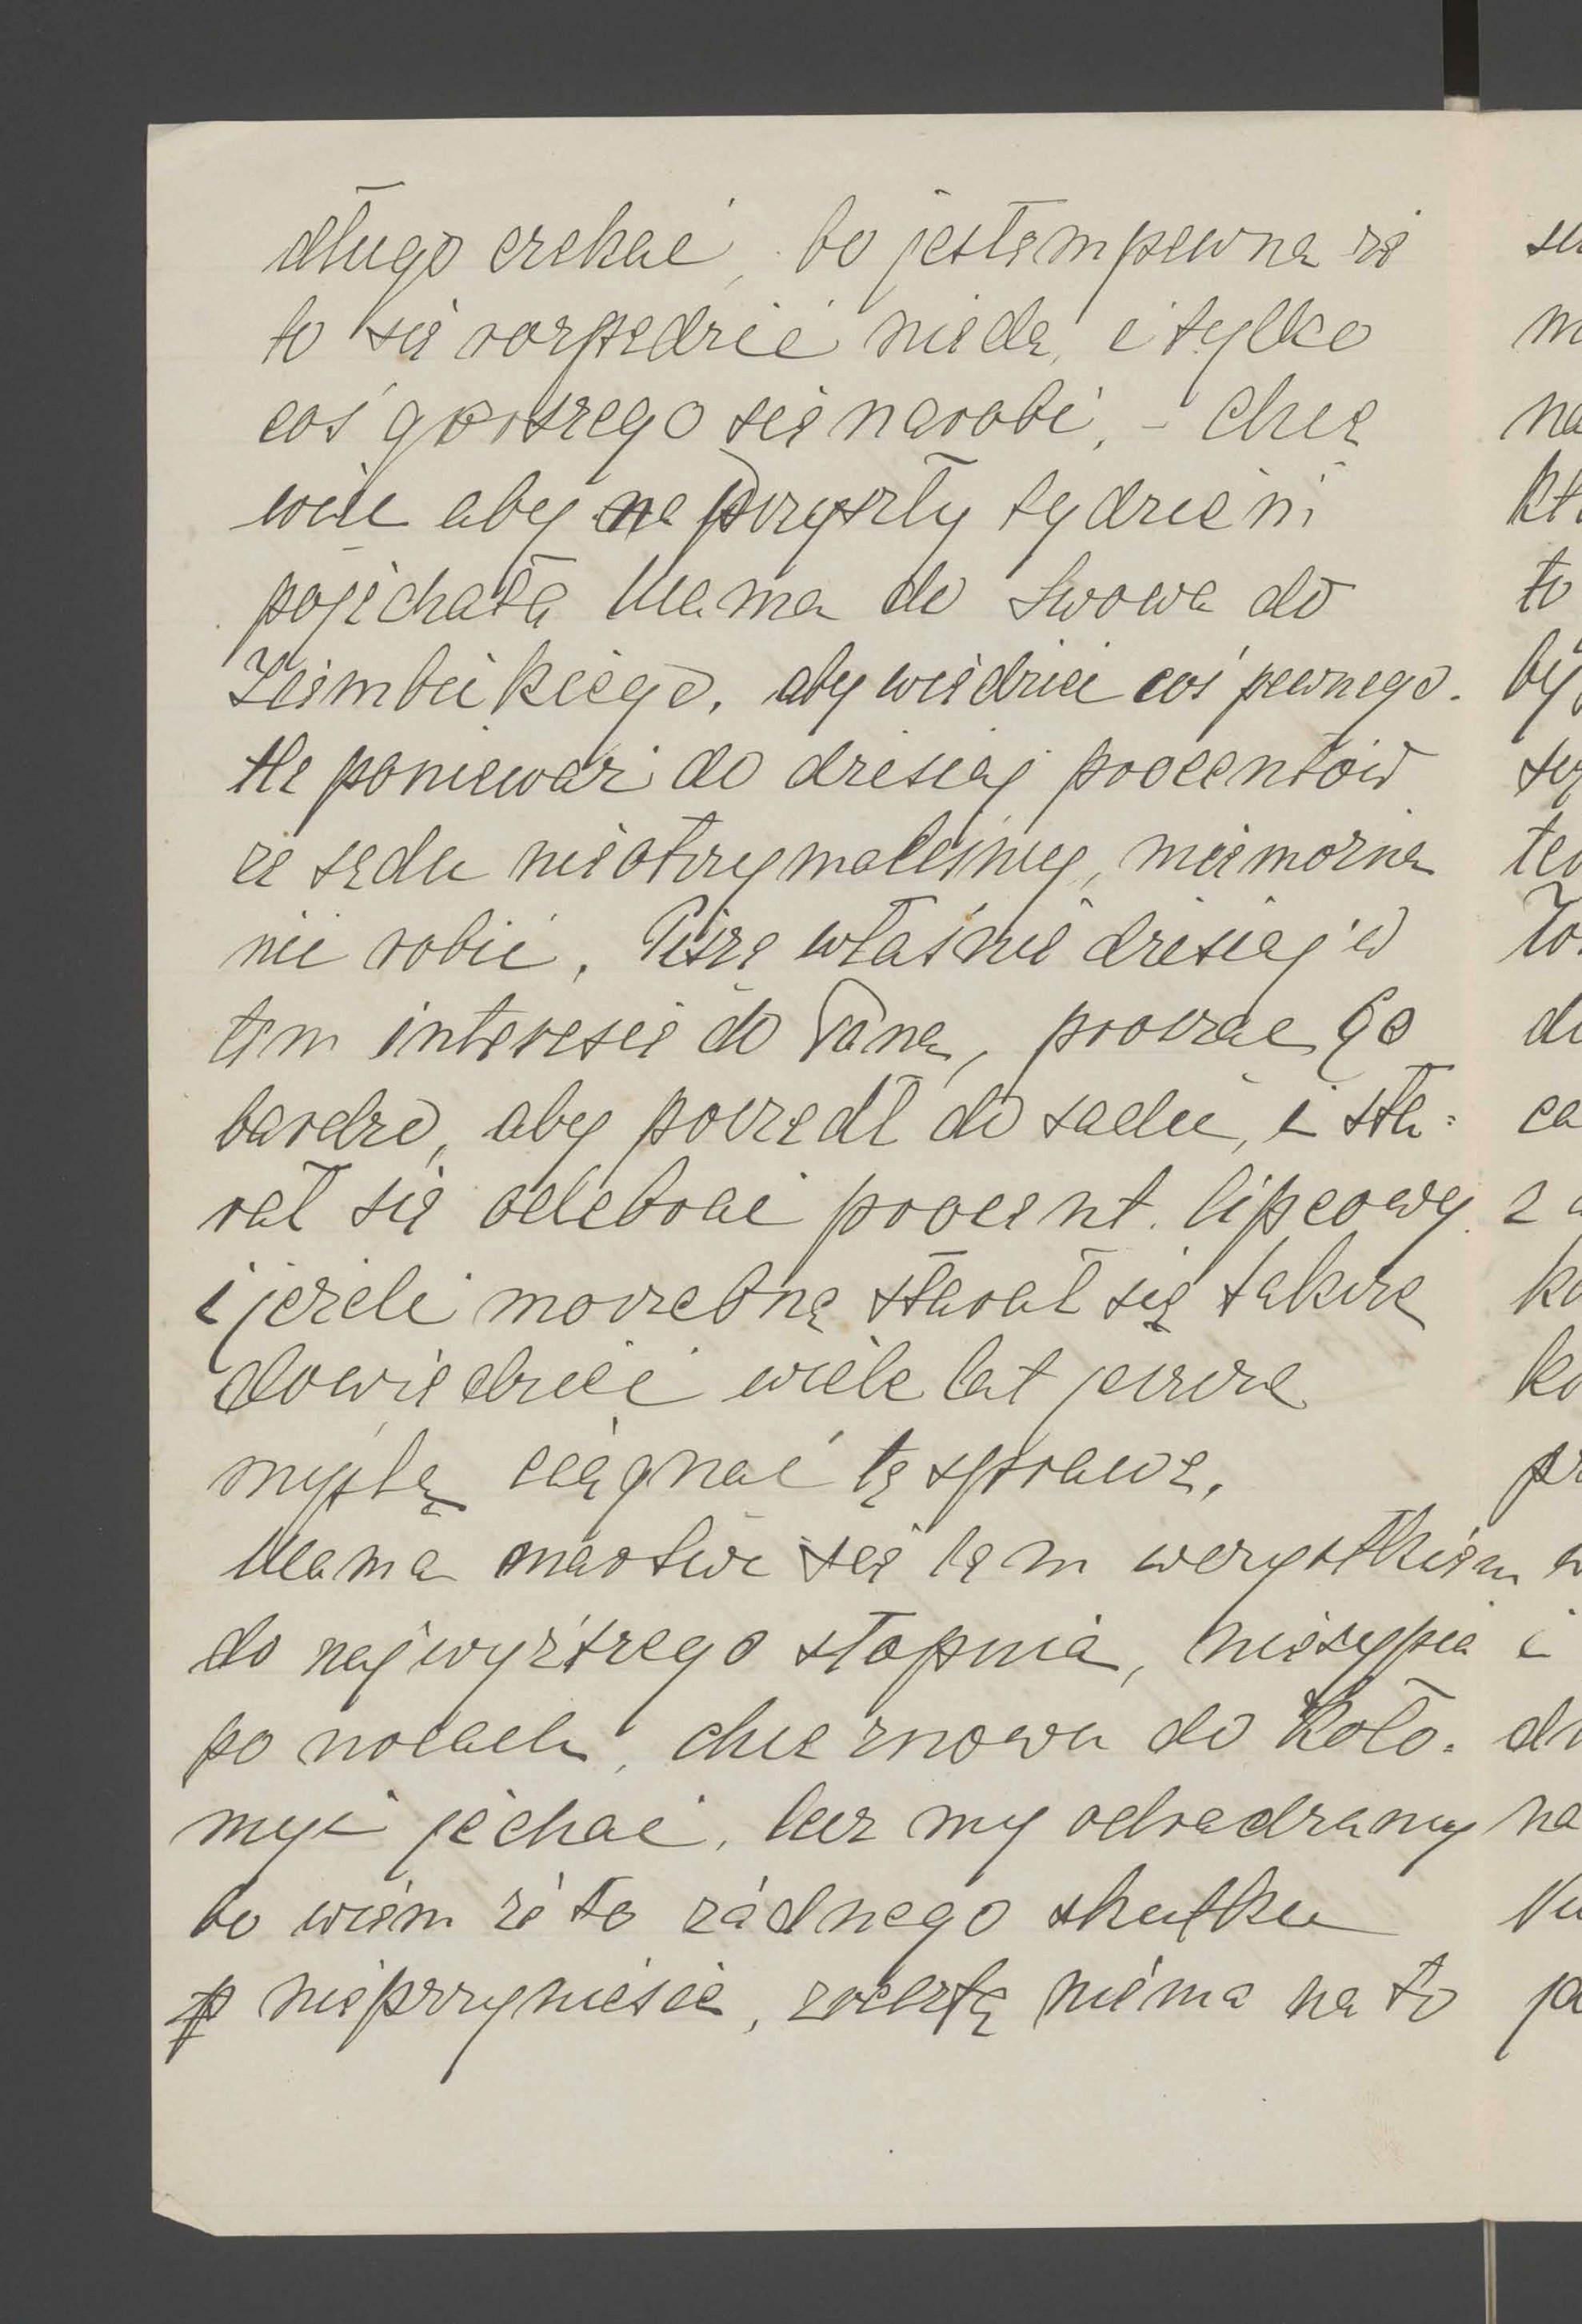 długo czekać, bo jestem pewna że
to się rozpędzić nieda, i tylko
coś gorszego się narobi, - Chcę
więc aby na przyszły tydzień
pojechała Mama do Lwowa do
Ziembickiego, aby wiedzieć coś pewnego.
Ale ponieważ do dzisiaj procentów
ze sądu nieotrzymaliśmy, niemożna
nic robić. Piszę właśnie dzisiaj w
tym interesie do Pana, prosząc Go
bardzo, aby poszedł do sądu, i sta=
rał się odebrać procent lipcowy
i jeżeli można starał się także
dowiedzieć wiele lat jeszcze
myślą ciągnąć tę sprawę.
Mama martwi się tem wszystkiem
do najwyższego stopnia, niesypia
po nocach, chce znowu do Koło=
myi jechać, lecz my odradzamy
bo wiem że to żadnego skutku
nieprzyniesie, zresztą niema na to
su
m
na
kt
to
by
te
do
ca
z
ko
ko
pr
i
na